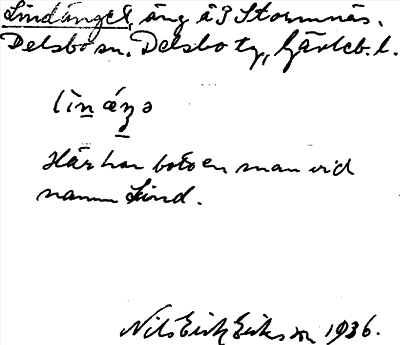 Lindängel, äng å 3 Stormnäs.
Delsbo sn. Delsbo tg, Gävleb. l.
Här har bott en man vid
namn Lind.
Nils Erik Eriksson 1936.